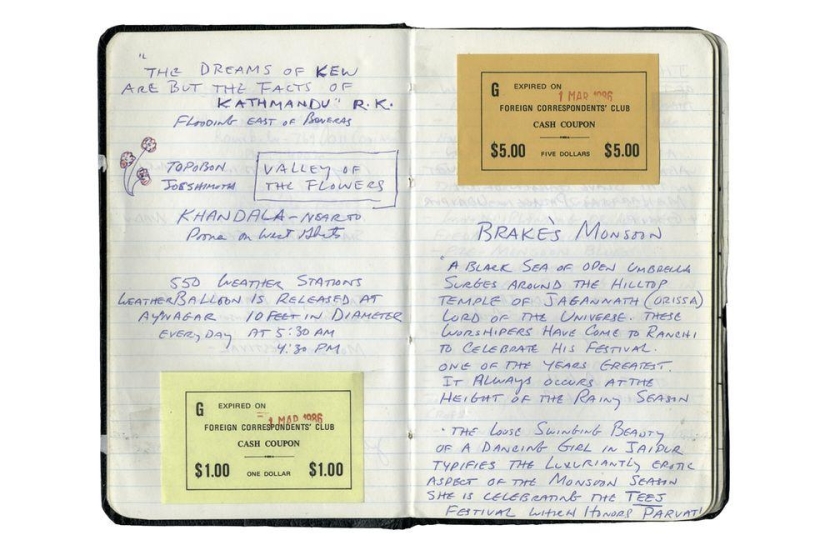 "THE DREAMS OF KEW
ARE BUT THE FACTS OF
KATHMANDU" R.K.
FLOODING EAST OF
TOPOBON
JOESHIMOTH
VALLEY OF
THE FLOWERS
KHANDALA - NEAR TO
on West Ghats
550 WEATHER STATIONS
WEATHER BALLOON IS RELEASED AT
AYNAGAR 10 FEET IN DIAMETER
EVERYDAY AT 5:30 AM
4:30 PM
G EXPIRED ON
1 MAR 1986
FOREIGN CORRESPONDENTS' CLUB
CASH COUPON
$1.00 ONE DOLLAR $1.00
G EXPIRED ON
1 MAR 1986
FOREIGN CORRESPONDENTS' CLUB
CASH COUPON
$5.00 FIVE DOLLARS $5.00
BRAKE'S MONSOON
"A BLACK SEA OF OPEN UMBRELLA
SURGES AROUND THE HILLTOP
TEMPLE OF JAGANNATH (ORISSA)
LORD OF THE UNIVERSE. THESE
WORSHIPERS HAVE COME TO RANCHI
TO CELEBRATE HIS FESTIVAL.
ONE OF THE YEARS GREATEST.
IT ALWAYS OCCURS AT THE
HEIGHT OF THE RAINY SEASON
"THE LOOSE SWINGING BEAUTY
OF A DANCING GIRL IN JAIPUR
TYPIFIES THE LUXURIANTLY EROTIC
ASPECT OF THE MONSOON SEASON
SHE IS CELEBRATING THE TEEJ
FESTIVAL WHICH HONORS PARVATI